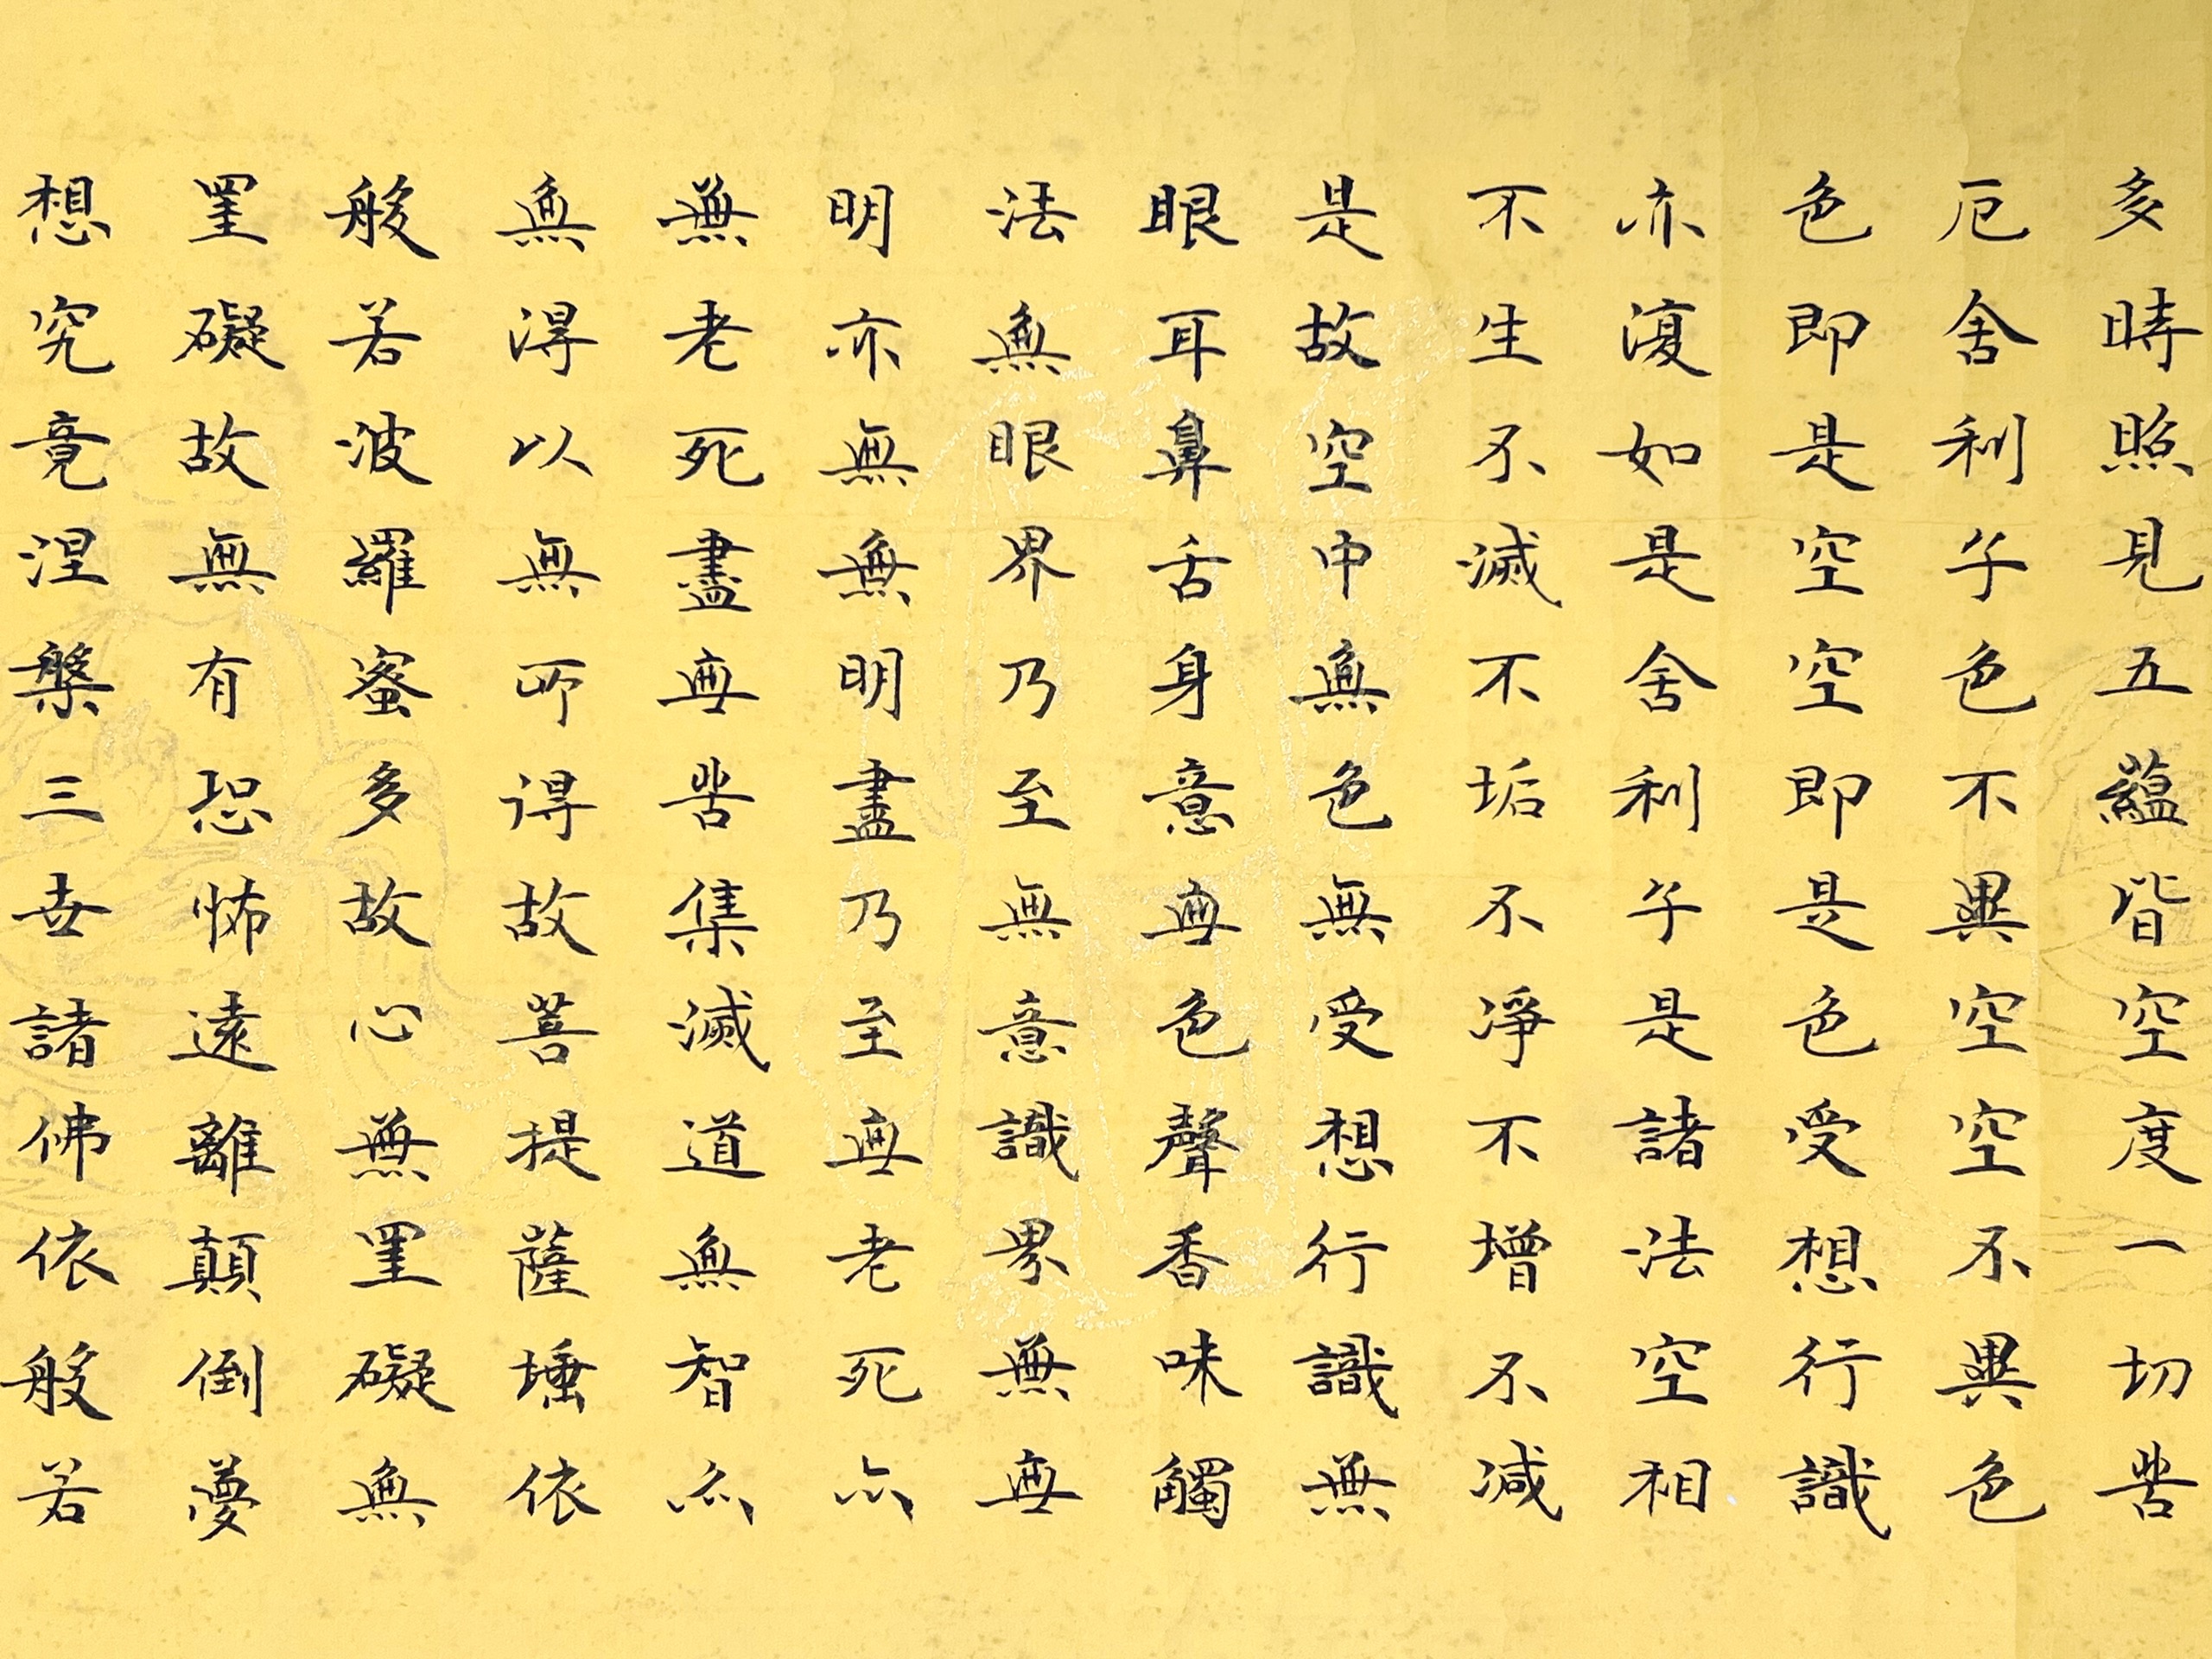 多時照見五蘊皆空度一切苦
厄舍利子色不異空空不異色
色即是空空即是色受想行識
亦復如是舍利子是諸法空相
不生不滅不垢不淨不增不減
是故空中無色無受想行識無
眼耳鼻舌身意無色聲香味觸
法無眼界乃至無意識界無無
明亦無無明盡乃至無老死亦
無老死盡無苦集滅道無智亦
無得以無所得故菩提薩埵依
般若波羅蜜多故心無罣礙無
罣礙故無有恐怖遠離顛倒夢
想究竟涅槃三世諸佛依般若